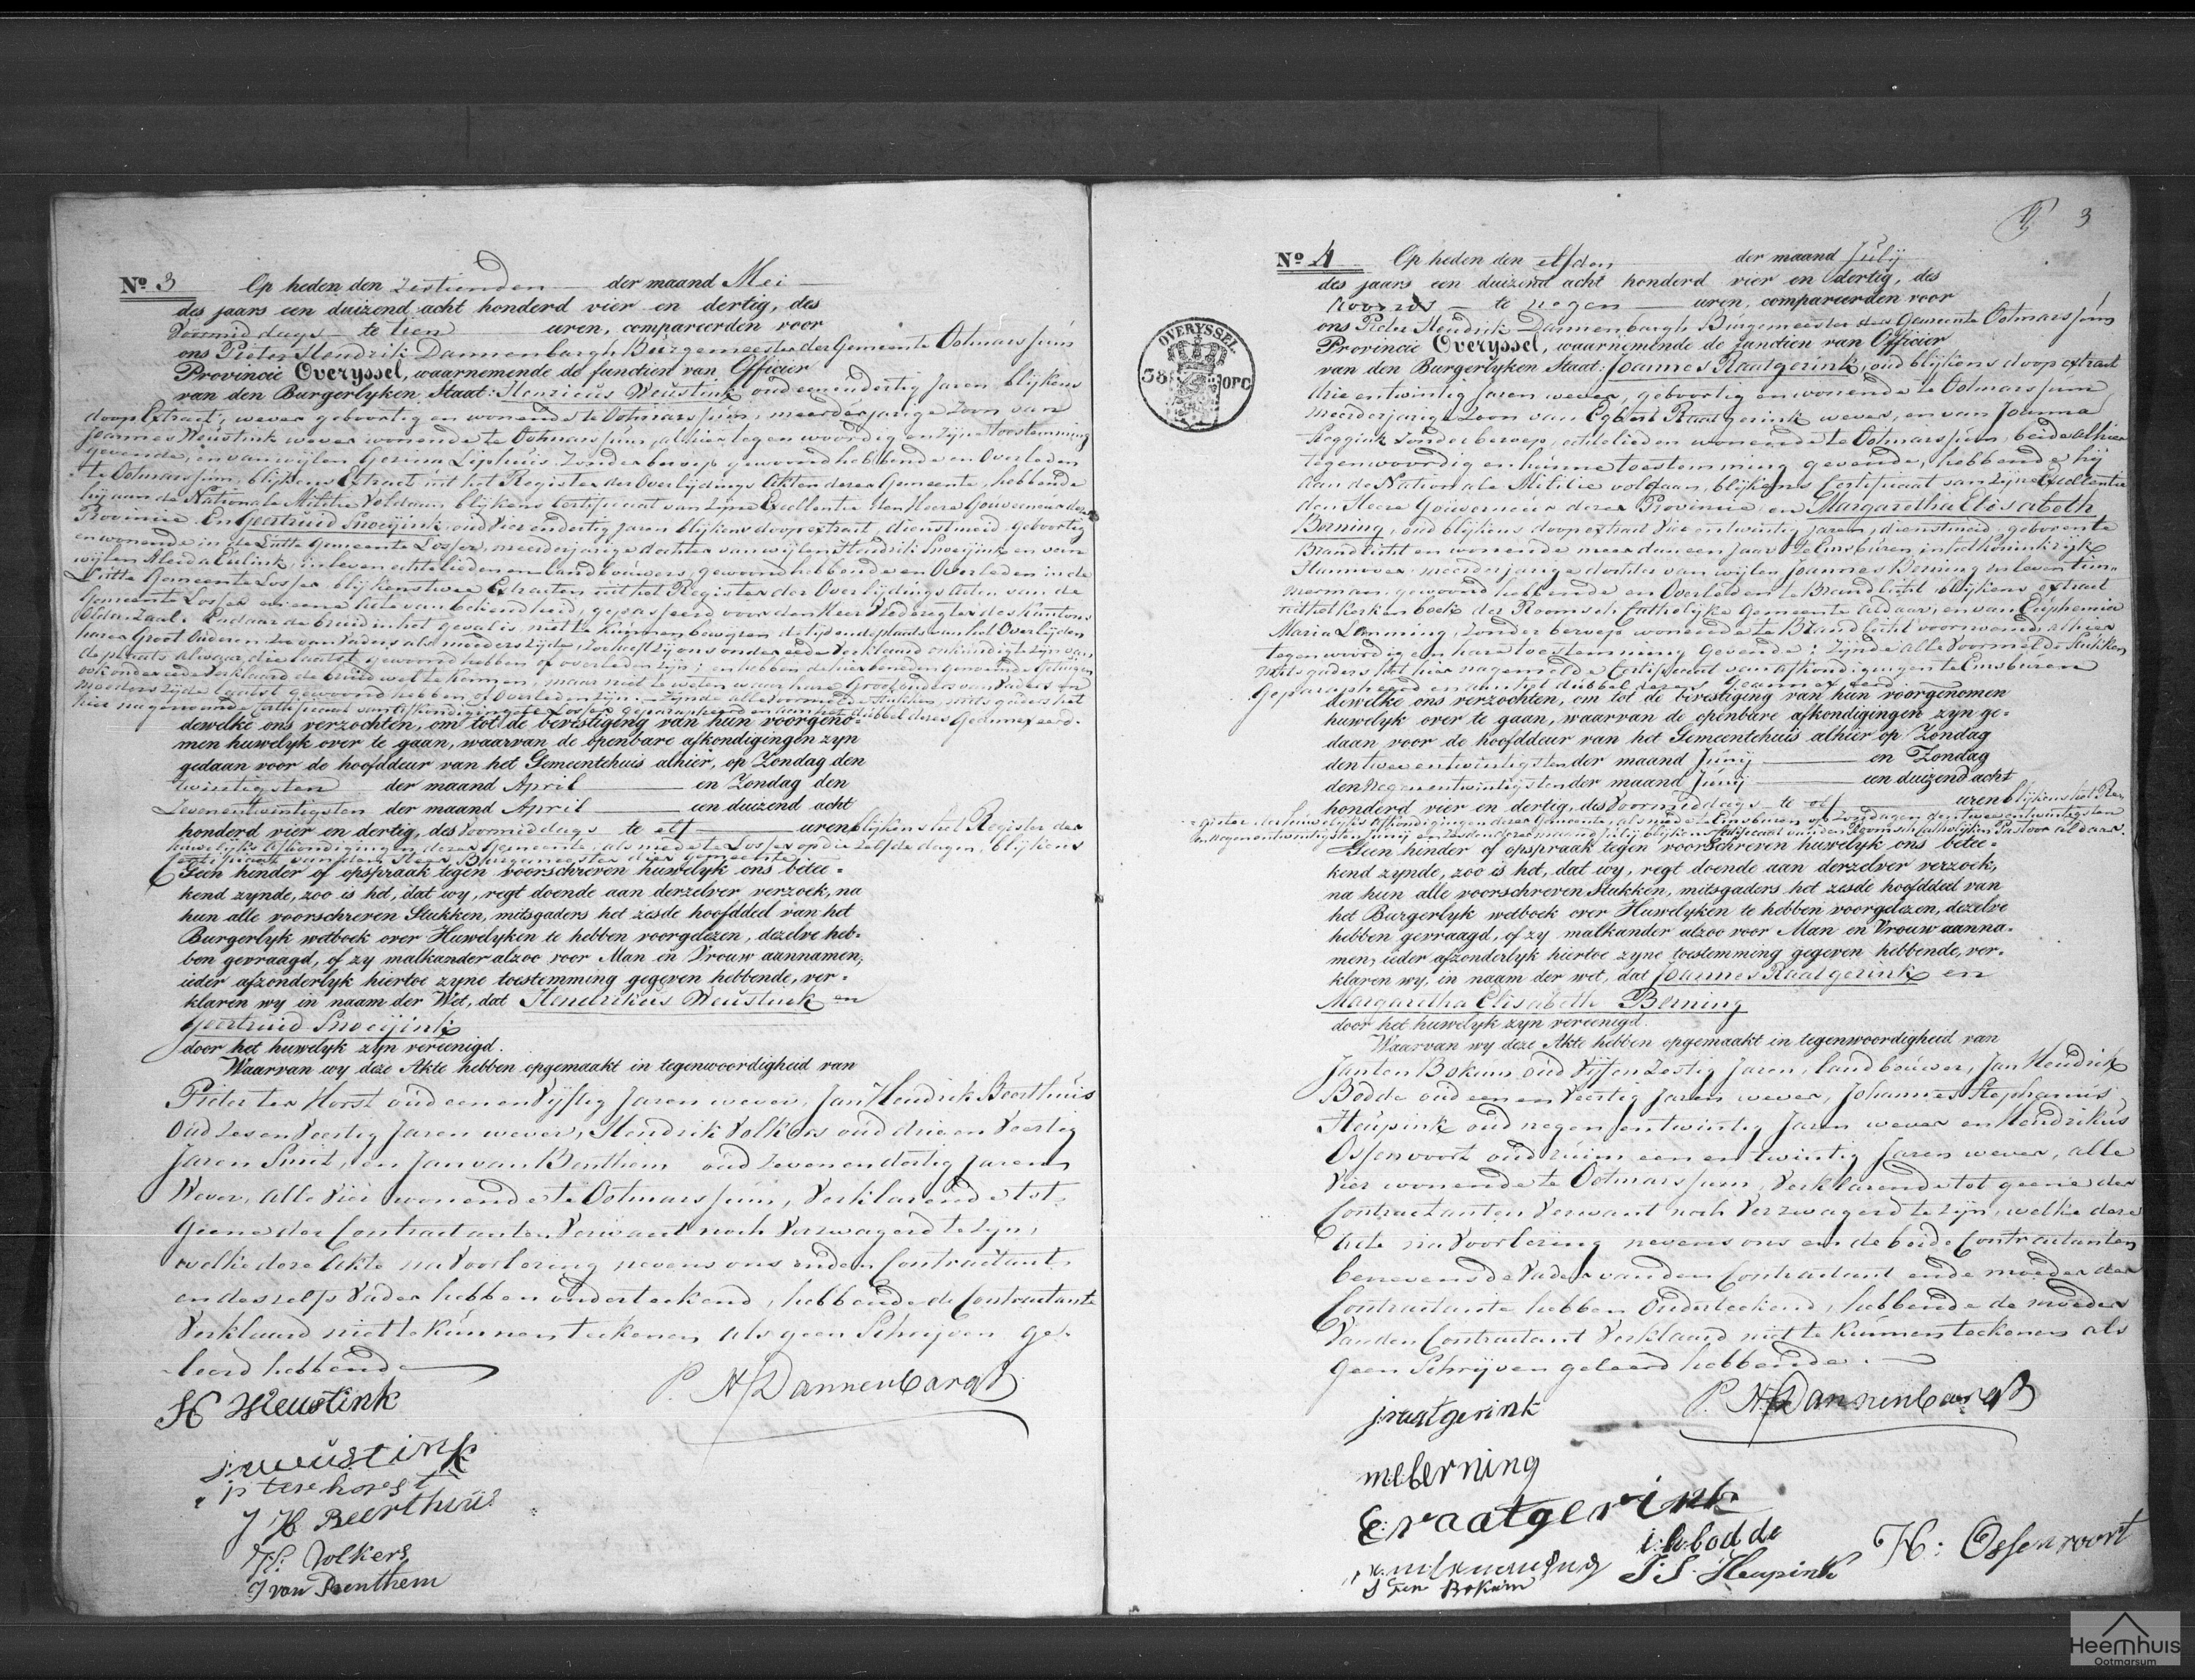 Nº 3 Op heden den Zestienden der maand Mei
des jaars een duizend acht honderd vier en dertig, des
Voormiddags te tien uren, compareerden voor
ons Pieter Hendrik Dannenbargh Burgemeester der Gemeente Ootmarssum
Provincie Overyssel, waarnemende de functien van Officier
van den Burgerlyken Staat: Henricus Weustink oud eenendertig Jaren blijkens
doop Extract, wever geboortig en wonende te Ootmarssum, meerderjarige zoon van
Joannes Weustink wever wonende te Ootmarssum, alhier tegenwoordig en zijne toestemming
gevende, en van wijlen Gerina Liphuis zonder beroep gewoond hebbende en Overleden
te Ootmarssum, blijkens Extract uit het Register der Overlijdings Akten dezer Gemeente, hebbende
hij aan de Nationale Militie Voldaan blijkens Certificaat van Zijne Excellentie den Heere Gouverneur dezer
Provincie. En Geertruid Snoeijink oud Vier endertig Jaren blijkens doopextract, dienstmeid, geboortig
en wonende in de Lutte Gemeente Losser, meerderjarige dochter van wijlen Hendrik Snoeijink en van
wijlen Aleida Eulink, in leven echtelieden en landbouwers, gewoond hebbende en Overleden in de
Lutte Gemeente Losser blijkens twee Extracten uit het Register der Overlijdings Acten van de
Gemeente Losser en eene Acte van bekendheid, gepasseerd voor den Heer Vrederegter des Kantons
Oldenzaal. En daar de bruid in het geval is, niet te kunnen bewyzen de tijd en de plaats van het Overlijden
harer Groot Ouderen zoo van Vaders als moeders zijde, zoo heeft zij ons onder eede Verklaard onkundig te zijn van
de plaats alwaar die laatst gewoond hebben of overleden zijn; en hebben de hier beneden genoemde Getuigen
ook onder eede Verklaard de bruid wel te kennen, maar niet te weten waar hare Grootouders van Vaders en
moeders zijde laatst gewoond hebben of Overleden zijn. Zijnde alle Voormelde Stukken, mitsgaders het
hier nagenoemde Certificaat van Afkondiging te Losser geparapheerd en aan het dubbel dezes Geannexeerd.
dewelke ons verzochten, om tot de bevestiging van hun voorgeno-
men huwelyk over te gaan, waarvan de openbare afkondigingen zyn
gedaan voor de hoofddeur van het Gemeentehuis alhier, op Zondag den
twintigsten der maand April en Zondag den
Zevenentwintigsten der maand April een duizend acht
honderd vier en dertig, des Voormiddags te elf uren blijkens het Register der
huwelijks Afkondigingen dezer Gemeente, als mede te Losser op die zelfde dagen, blijkens
Certificaat van den Heer Burgemeester dier Gemeente.
Geen hinder of opspraak tegen voorschreven huwelyk ons betee-
kend zynde, zoo is het, dat wy, regt doende aan derzelver verzoek, na
hun alle voorschreven Stukken, mitsgaders het zesde hoofddeel van het
Burgerlyk wetboek over Huwelyken te hebben voorgelezen, dezelve heb-
ben gevraagd, of zy malkander alzoo voor Man en Vrouw aannamen,
ieder afzonderlyk hiertoe zyne toestemming gegeven hebbende, ver-
klaren wy in naam der Wet, dat Hendrikus Weustink en
Geertruid Snoeijink
door het huwelyk zyn vereenigd.
Waarvan wy deze Akte hebben opgemaakt in tegenwoordigheid van
Pieter ter Horst oud eenenVijftig Jaren wever, Jan Hendrik Beerthuis
Oud Zes en Veertig Jaren wever, Hendrik Volkers oud drie en Veertig
Jaren Smit, en Jan van Benthem oud Zevenendertig Jaren
Wever, alle Vier wonende te Ootmarssum, Verklarende tot
Geene der Contractanten Verwant noch Verzwagerd te zijn,
welke deze Akte na Voorlezing nevens ons en den Contractant
en deszelfs Vader hebben onderteekend, hebbende de Contractante
Verklaard niet te kunnen teekenen als geen Schrijven ge-
leerd hebbende
P. H. Dannenbargh
H Weustink
j weustink
p ter horst
J H Beerthuis
H: Volkers
J van Benthem
3
OVERYSSEL
38 OPC
Nº 4 Op heden den elfden der maand July
des jaars een duizend acht honderd vier en dertig, des
te negen uren, compareerden voor
ons Pieter Hendrik Dannenbargh Burgemeester der Gemeente Ootmarssum
Provincie Overyssel, waarnemende de functien van Officier
van den Burgerlyken Staat: Joannes Raatgerink, oud blijkens doop extract
drie entwintig Jaren wever, geboortig en wonende te Ootmarssum
meerderjarige Zoon van Egbert Raatgerink wever, en van Joanna
zonder beroep, echtelieden wonende te Ootmarssum, beide alhier
tegenwoordig en hunne toestemming gevende, hebbende hij
aan de Nationale Militie voldaan, blijkens Certificaat van Zijne Excellentie
den Heere Gouverneur dezer Provincie en Margaretha Elisabeth
Berning, oud blijkens doopextract Vier entwintig Jaren, dienstmeid, geboren te
Brandlicht en wonende meer dan een Jaar te Emsburen, in het Koninkrijk
Hannover meerderjarige dochter van wijlen Joannes Berning in leven tim-
merman gewoond hebbende en Overleden te Brandlicht blijkens extract
uit het Kerkenboek der Roomsch Catholijke Gemeente aldaar, en van Euphemia
Maria Lemming, zonder beroep wonende te Brandlicht voornoemd, alhier
tegenwoordig en hare toestemming Gevende; zijnde alle Voormelde Stukken
mitsgaders het hier nagemelde Certificaat van Afkondigingen te Emsburen
Geparapheerd en aan het dubbel dezes Geannexeerd.
dewelke ons verzochten, om tot de bevestiging van hun voorgenomen
huwelyk over te gaan, waarvan de openbare afkondigingen zyn ge-
daan voor de hoofddeur van het Gemeentehuis alhier op Zondag
den twee entwintigsten der maand Junij en Zondag
den Negenentwintigsten der maand Junij een duizend acht
honderd vier en dertig, des Voormiddags te elf uren blijkens het Re-
gister der huwelijks Afkondigingen dezer Gemeente, als mede te Emsburen op Zondagen den twee entwintigsten
en Negenentwintigsten Junij en Zesden dezer maand Julij blijkens Certificaat van den Roomsch Catholijken Pastoor aldaar.
Geen hinder of opspraak tegen voorschreven huwelyk ons betee-
kend zynde, zoo is het, dat wy, regt doende aan derzelver verzoek,
na hun alle voorschreven Stukken, mitsgaders het zesde hoofddeel van
het Burgerlyk wetboek over Huwelyken te hebben voorgelezen, dezelve
hebben gevraagd, of zy malkander alzoo voor Man en Vrouw aanna-
men, ieder afzonderlyk hiertoe zyne toestemming gegeven hebbende, ver-
klaren wy, in naam der wet, dat Joannes Raatgerink en
Margaretha Elisabeth Berning
door het huwelyk zyn vereenigd.
Waarvan wy deze Akte hebben opgemaakt in tegenwoordigheid van
Jan ten Bokum oud Vijfenzestig Jaren, landbouwer, Jan Hendrik
Bodde oud een en Veertig Jaren wever, Johannes Stephanus
Heupink oud negen entwintig Jaren wever en Hendrikus
Ossenvoort oud ruim een en twintig Jaren wever, alle
Vier wonende te Ootmarssum, Verklarende tot geene der
Contractanten Verwant noch Verzwagerd te zijn, welke deze
Acte na Voorlezing nevens ons en de beide Contractanten
benevens de Vader van den Contractant en de moeder der
Contractante hebben Onderteekend, hebbende de moeder
Van den Contractant Verklaard niet te kunnen teekenen als
Geen Schrijven geleerd hebbende.
P. H. Dannenbargh
j raatgerink
m e berning
E: raatgerink
i: h: bodde
J: S: Heupink
H: Ossenvoort
J ten Bokum
Heemhuis
Ootmarsum